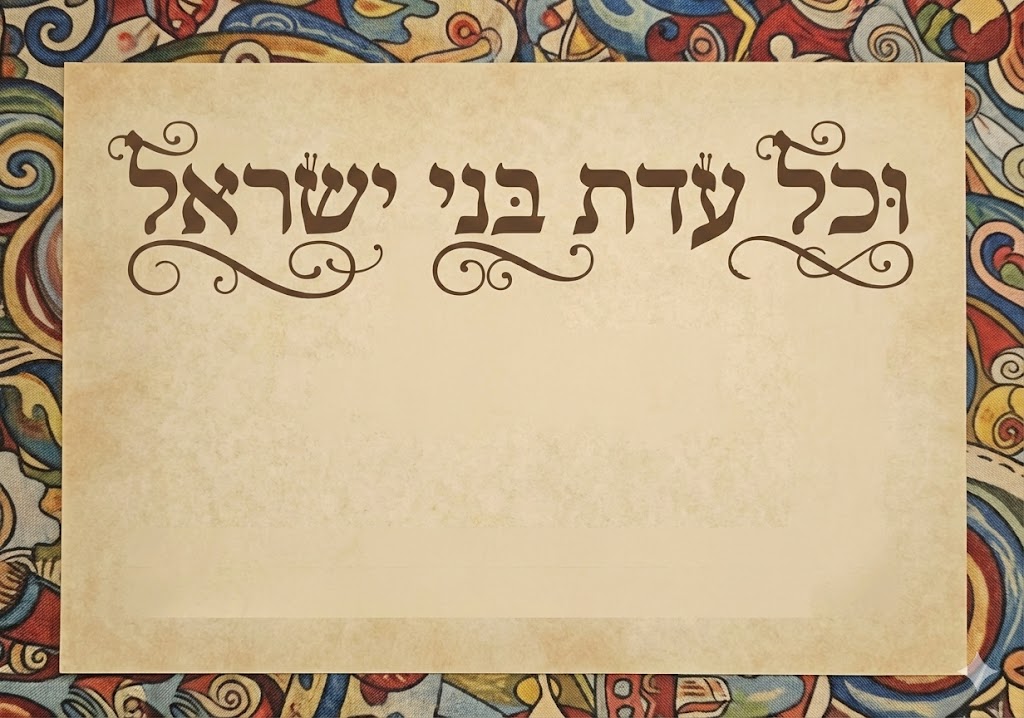 וּכל עדת בּני ישראל